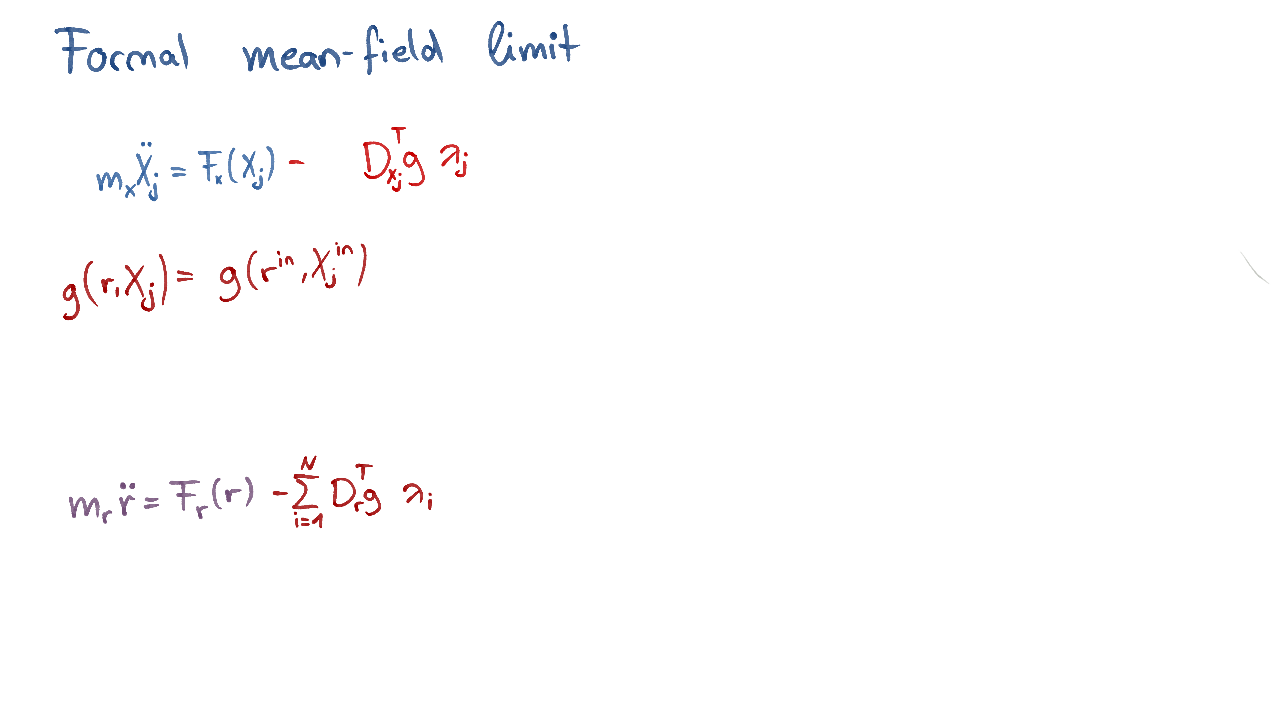 Formal mean-field limit
m_x Ẍ_j = F_x(X_j) - D_{x_j}^T g λ_j
g(r, X_j) = g(r^{in}, X_j^{in})
m_r r̈ = F_r(r) - ∑_{i=1}^N D_r^T g λ_i